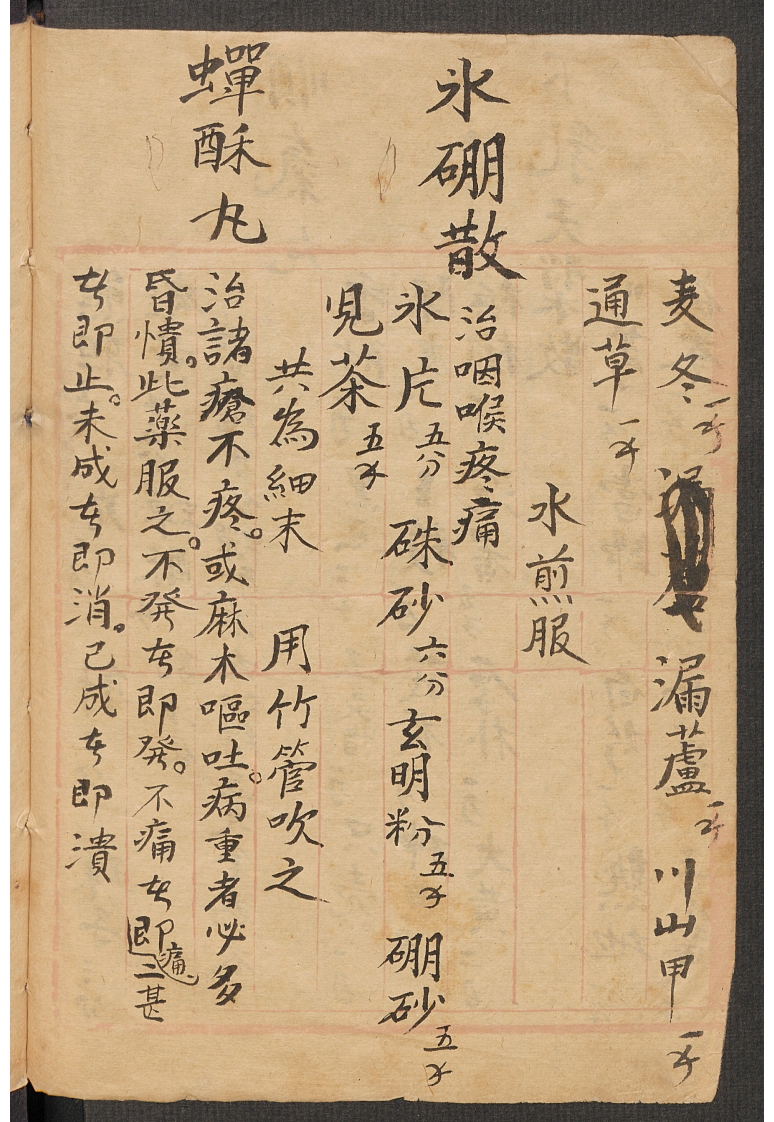 麦冬一錢 漏蘆一錢 川山甲一錢
通草一錢
水煎服
氷硼散 治咽喉疼痛
氷片五分 硃砂六分 玄明粉五錢 硼砂五錢
児茶五錢
共為細末 用竹管吹之
蟬酥丸 治諸瘡不疼。或麻木嘔吐。病重者必多
昏憒。此藥服之。不發者即發。不痛者即痛、二甚
者即止。未成者即消。已成者即潰